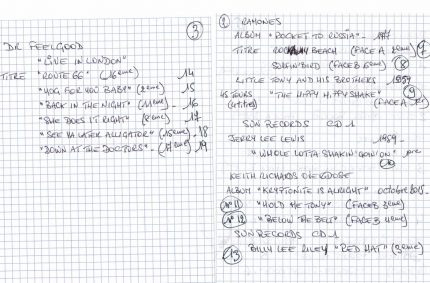 3
DR FEELGOOD
"LIVE IN LONDON"
TITRE "ROUTE 66" (16eme) 14
"HOG FOR YOU BABY" (2eme) 15
"BACK IN THE NIGHT" (11eme) - 16
"SHE DOES IT RIGHT" (8eme) - 17
"SEE YA LATER ALLIGATOR" (15eme) - 18
"DOWN AT THE DOCTORS" - (17eme) 19
RAMONES
ALBUM "ROCKET TO RUSSIA" - 1977
TITRE ROCKAWAY BEACH (FACE A 2eme) 7
SURFIN BIRD (FACE B 5eme) 8
LITTLE TONY AND HIS BROTHERS 1959
45 TOURS "THE HIPPY HIPPY SHAKE" 9
(4 titres) (FACE A
SUN RECORDS CD 1
JERRY LEE LEWIS 1957
"WHOLE LOTTA SHAKIN' GOIN' ON"
10
KEITH RICHARDS
ALBUM "KRYPTONITE IS ALRIGHT" octobre 2015
N° 11 "HOLD ME TONY" (FACE B 3eme)
N° 12 "BELOW THE BELT" (FACE B 4eme)
SUN RECORDS CD 1
13 BILLY LEE RILEY "RED HAT" (3eme)